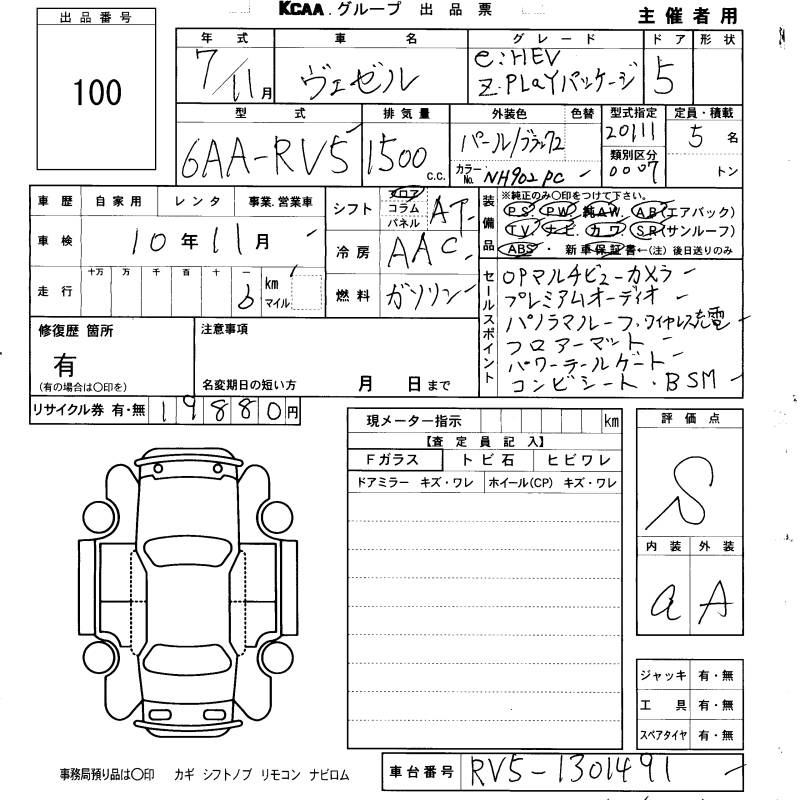 KCAA.グループ 出品票
主催者用
出品番号
100
年式 車名 グレード ドア 形状
7/11月 ヴェゼル e:HEV Z・PLaYパッケージ 5
型式 排気量 外装色 色替 型式指定 定員・積載
6AA-RV5 1500 C.C. パール/ブラック2 20111 5名
カラーNo. NH902PC 類別区分 0007 トン
車歴 自家用 レンタ 事業.営業車
シフト フロア コラム パネル AT
装備品 ※純正のみ○印をつけて下さい。
PS. PW. 純AW. AB(エアバック)
TV. ナビ. カワ. SR(サンルーフ)
ABS・ 新車保証書←(注) 後日送りのみ
車検 10年11月
冷房 AAC
走行 十万 万 千 百 十 一 km マイル
6
燃料 ガソリン
セールスポイント
OPマルチビューカメラ
プレミアムオーディオ
パノラマルーフ.ワイヤレス充電
フロアーマット
パワーテールゲート
コンビシート.BSM
修復歴 箇所
有
(有の場合は○印を)
注意事項
名変期日の短い方 月 日まで
リサイクル券 有・無 19880円
現メーター指示 km
【査定員記入】
Fガラス トビ石 ヒビワレ
ドアミラー キズ・ワレ ホイール(CP) キズ・ワレ
評価点
S
内装 外装
a A
ジャッキ 有・無
工具 有・無
スペアタイヤ 有・無
事務局預り品は○印 カギ シフトノブ リモコン ナビロム
車台番号 RV5-1301491